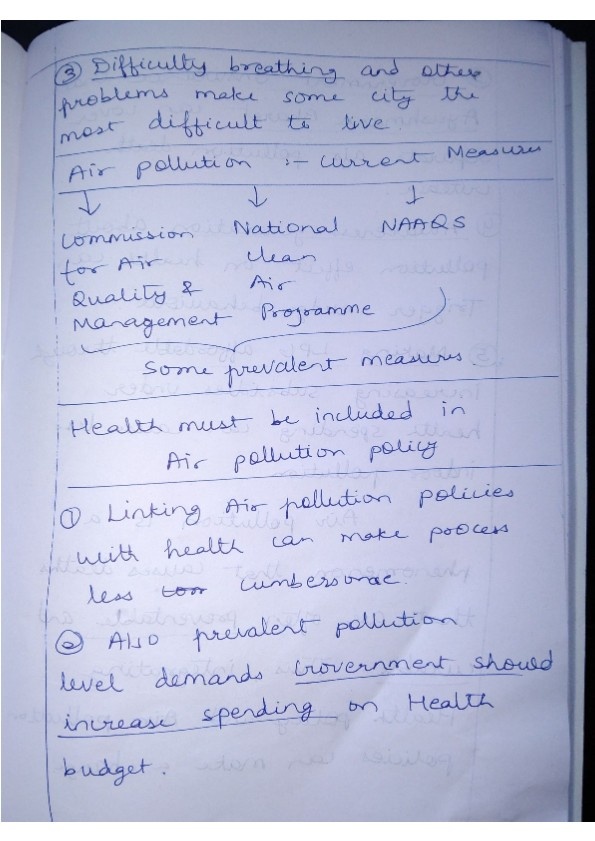 ③ Difficulty breathing and other
problems make some city the
most difficult to live.
Air pollution :- current Measures
Commission National NAAQS
for Air clean
Quality & Air
Management Programme
Some prevalent measures.
Health must be included in
Air pollution policy
① Linking Air pollution policies
with health can make process
less cumbersome.
② Also prevalent pollution
level demands Government should
increase spending on Health
budget.